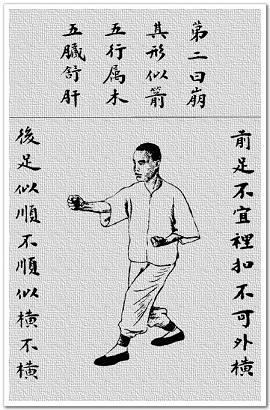 第二曰崩
其形似箭
五行属木
五臟舒肝
前足不宜裡扣不可外橫
後足似順不順似橫不橫